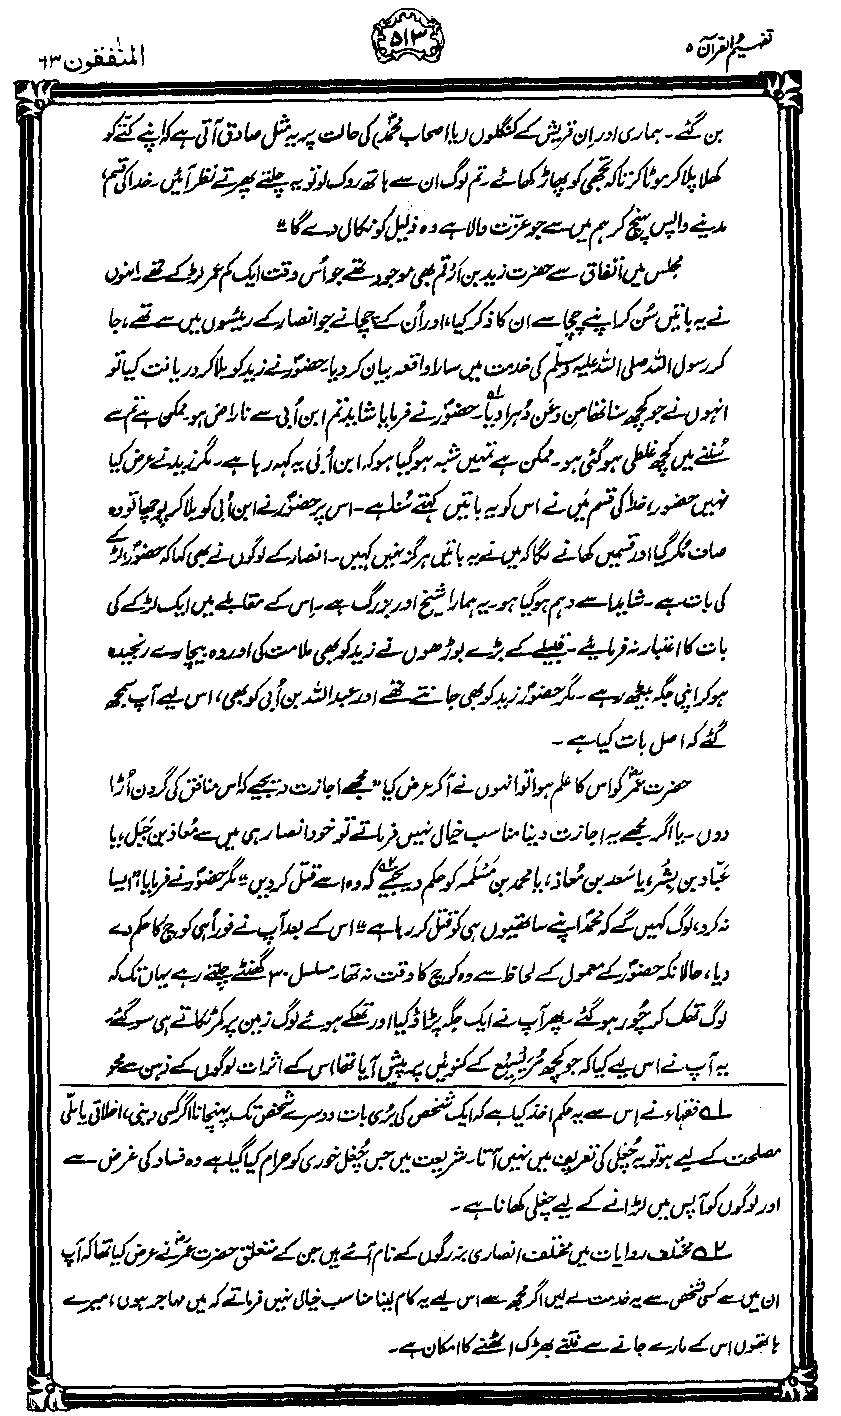 تفہیم القرآن ۵
۵۱۳
المنٰفقون ۶۳
بن گئے۔ ہماری اور ان قریش کے کنگلوں (یا اصحاب محمدؐ) کی حالت پر یہ مثل صادق آتی ہے کہ اپنے کتے کو
کھلا پلا کر موٹا کر تا کہ تجھی کو پھاڑ کھائے۔ تم لوگ ان سے ہاتھ روک لو تو یہ چلتے پھرتے نظر آئیں۔ خدا کی قسم،
مدینے واپس پہنچ کر ہم میں سے جو عزت والا ہے وہ ذلیل کو نکال دے گا"
مجلس میں اتفاق سے حضرت زید بن اَرْقم بھی موجود تھے جو اُس وقت ایک کم عمر لڑکے تھے۔ انہوں
نے یہ باتیں سُن کر اپنے چچا سے ان کا ذکر کیا، اور اُن کے چچا نے جو انصار کے رئیسوں میں سے تھے، جا
کر رسول اللہ صلی اللہ علیہ وسلم کی خدمت میں سارا واقعہ بیان کر دیا۔ حضورؐ نے زید کو بلا کر دریافت کیا تو
انہوں نے جو کچھ سنا تھا من و عَن دُہرا دیا۔ ؎۱ حضورؐ نے فرمایا شاید تم ابن اُبی سے ناراض ہو۔ ممکن ہے تم سے
سُننے میں کچھ غلطی ہو گئی ہو۔ ممکن ہے تمہیں شبہ ہو گیا ہو کہ ابن اُبی یہ کہہ رہا ہے۔ مگر زید نے عرض کیا
نہیں حضور، خدا کی قسم میں نے اس کو یہ باتیں کہتے سُنا ہے۔ اس پر حضورؐ نے ابن اُبی کو بلا کر پوچھا تو وہ
صاف مُکر گیا اور قسمیں کھانے لگا کہ میں نے یہ باتیں ہرگز نہیں کہیں۔ انصار کے لوگوں نے بھی کہا کہ حضورؐ، لڑکے
کی بات ہے۔ شاید اسے وہم ہو گیا ہو۔ یہ ہمارا شیخ اور بزرگ ہے۔ اِس کے مقابلے میں ایک لڑکے کی
بات کا اعتبار نہ فرمایئے۔ قبیلے کے بڑے بوڑھوں نے زید کو بھی ملامت کی اور وہ بیچارے رنجیدہ
ہو کر اپنی جگہ بیٹھ رہے۔ مگر حضورؐ زید کو بھی جانتے تھے اور عبداللہ بن اُبی کو بھی، اس لیے آپ سمجھ
گئے کہ اصل بات کیا ہے۔
حضرت عمرؓ کو اس کا علم ہوا تو انہوں نے آ کر عرض کیا "مجھے اجازت دیجیے کہ اس منافق کی گردن اُڑا
دوں۔ یا اگر مجھے یہ اجازت دینا مناسب خیال نہیں فرماتے تو خود انصار ہی میں سے مُعاذ بن جَبَل، یا
عَبّاد بن بِشْر، یا سَعد بن مُعاذ، یا محمد بن مَسْلَمہ کو حکم دیجیے ؎۲ کہ وہ اسے قتل کر دیں"۔ مگر حضورؐ نے فرمایا "ایسا
نہ کرو، لوگ کہیں گے کہ محمدؐ اپنے ساتھیوں ہی کو قتل کر رہا ہے" اس کے بعد آپ نے فوراً ہی کوچ کا حکم دے
دیا، حالانکہ حضورؐ کے معمول کے لحاظ سے وہ کوچ کا وقت نہ تھا۔ مسلسل ۳۰ گھنٹے چلتے رہے یہاں تک کہ
لوگ تھک کر چُور ہو گئے۔ پھر آپ نے ایک جگہ پڑاؤ کیا اور تھکے ہوئے لوگ زمین پر کمر ٹکاتے ہی سو گئے۔
یہ آپ نے اس لیے کیا کہ جو کچھ مُرَیسیع کے کنویں پر پیش آیا تھا اس کے اثرات لوگوں کے ذہن سے محو
؎۱ فقہاء نے اِس سے یہ حکم اخذ کیا ہے کہ ایک شخص کی بُری بات دوسرے شخص تک پہنچانا اگر کسی دینی، اخلاقی یا ملّی
مصلحت کے لیے ہو تو یہ چُغلی کی تعریف میں نہیں آتا۔ شریعت میں جس چُغل خوری کو حرام کیا گیا ہے وہ فساد کی غرض سے
اور لوگوں کو آپس میں لڑانے کے لیے چغلی کھانا ہے۔
؎۲ مختلف روایات میں مختلف انصاری بزرگوں کے نام آئے ہیں جن کے متعلق حضرت عمرؓ نے عرض کیا تھا کہ آپ
ان میں سے کسی شخص سے یہ خدمت لے لیں اگر مجھ سے اس لیے یہ کام لینا مناسب خیال نہیں فرماتے کہ میں مہاجر ہوں، میرے
ہاتھوں اس کے مارے جانے سے فتنے بھڑک اٹھنے کا امکان ہے۔